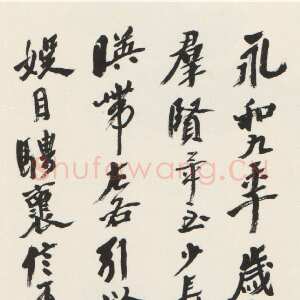 永和九年歲
羣賢畢至少長
暎帶左右引以
娛目騁褱信可
shufawang.cn